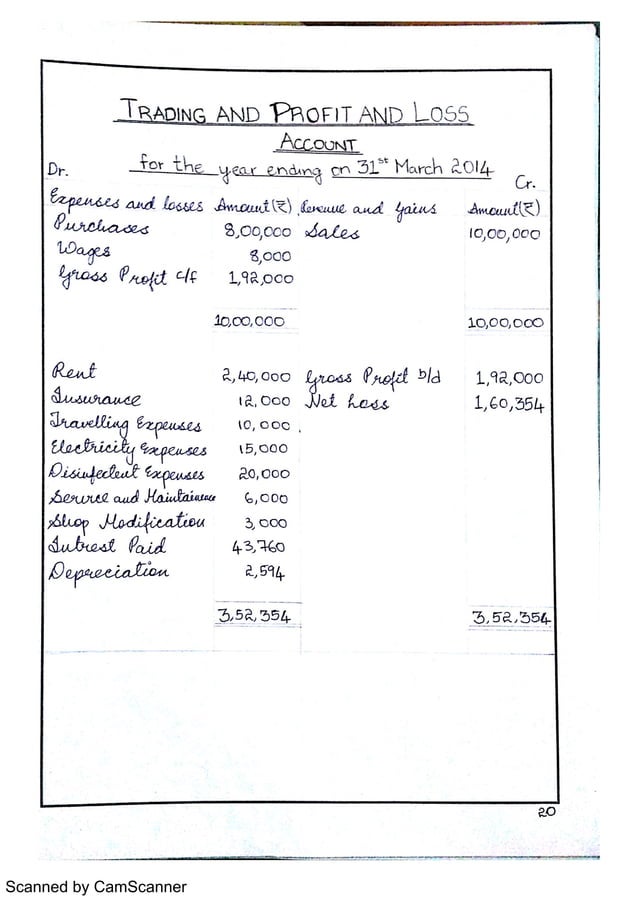 TRADING AND PROFIT AND LOSS
ACCOUNT
for the year ending on 31st March 2014
Dr. Cr.
Expenses and losses Amount(₹) Revenue and Gains Amount(₹)
Purchases 8,00,000 Sales 10,00,000
Wages 8,000
Gross Profit c/f 1,92,000
10,00,000 10,00,000
Rent 2,40,000 Gross Profit b/d 1,92,000
Insurance 12,000 Net Loss 1,60,354
Travelling Expenses 10,000
Electricity Expenses 15,000
Disinfectent Expenses 20,000
Service and Maintainance 6,000
Shop Modification 3,000
Intrest Paid 43,760
Depreciation 2,594
3,52,354 3,52,354
20
Scanned by CamScanner